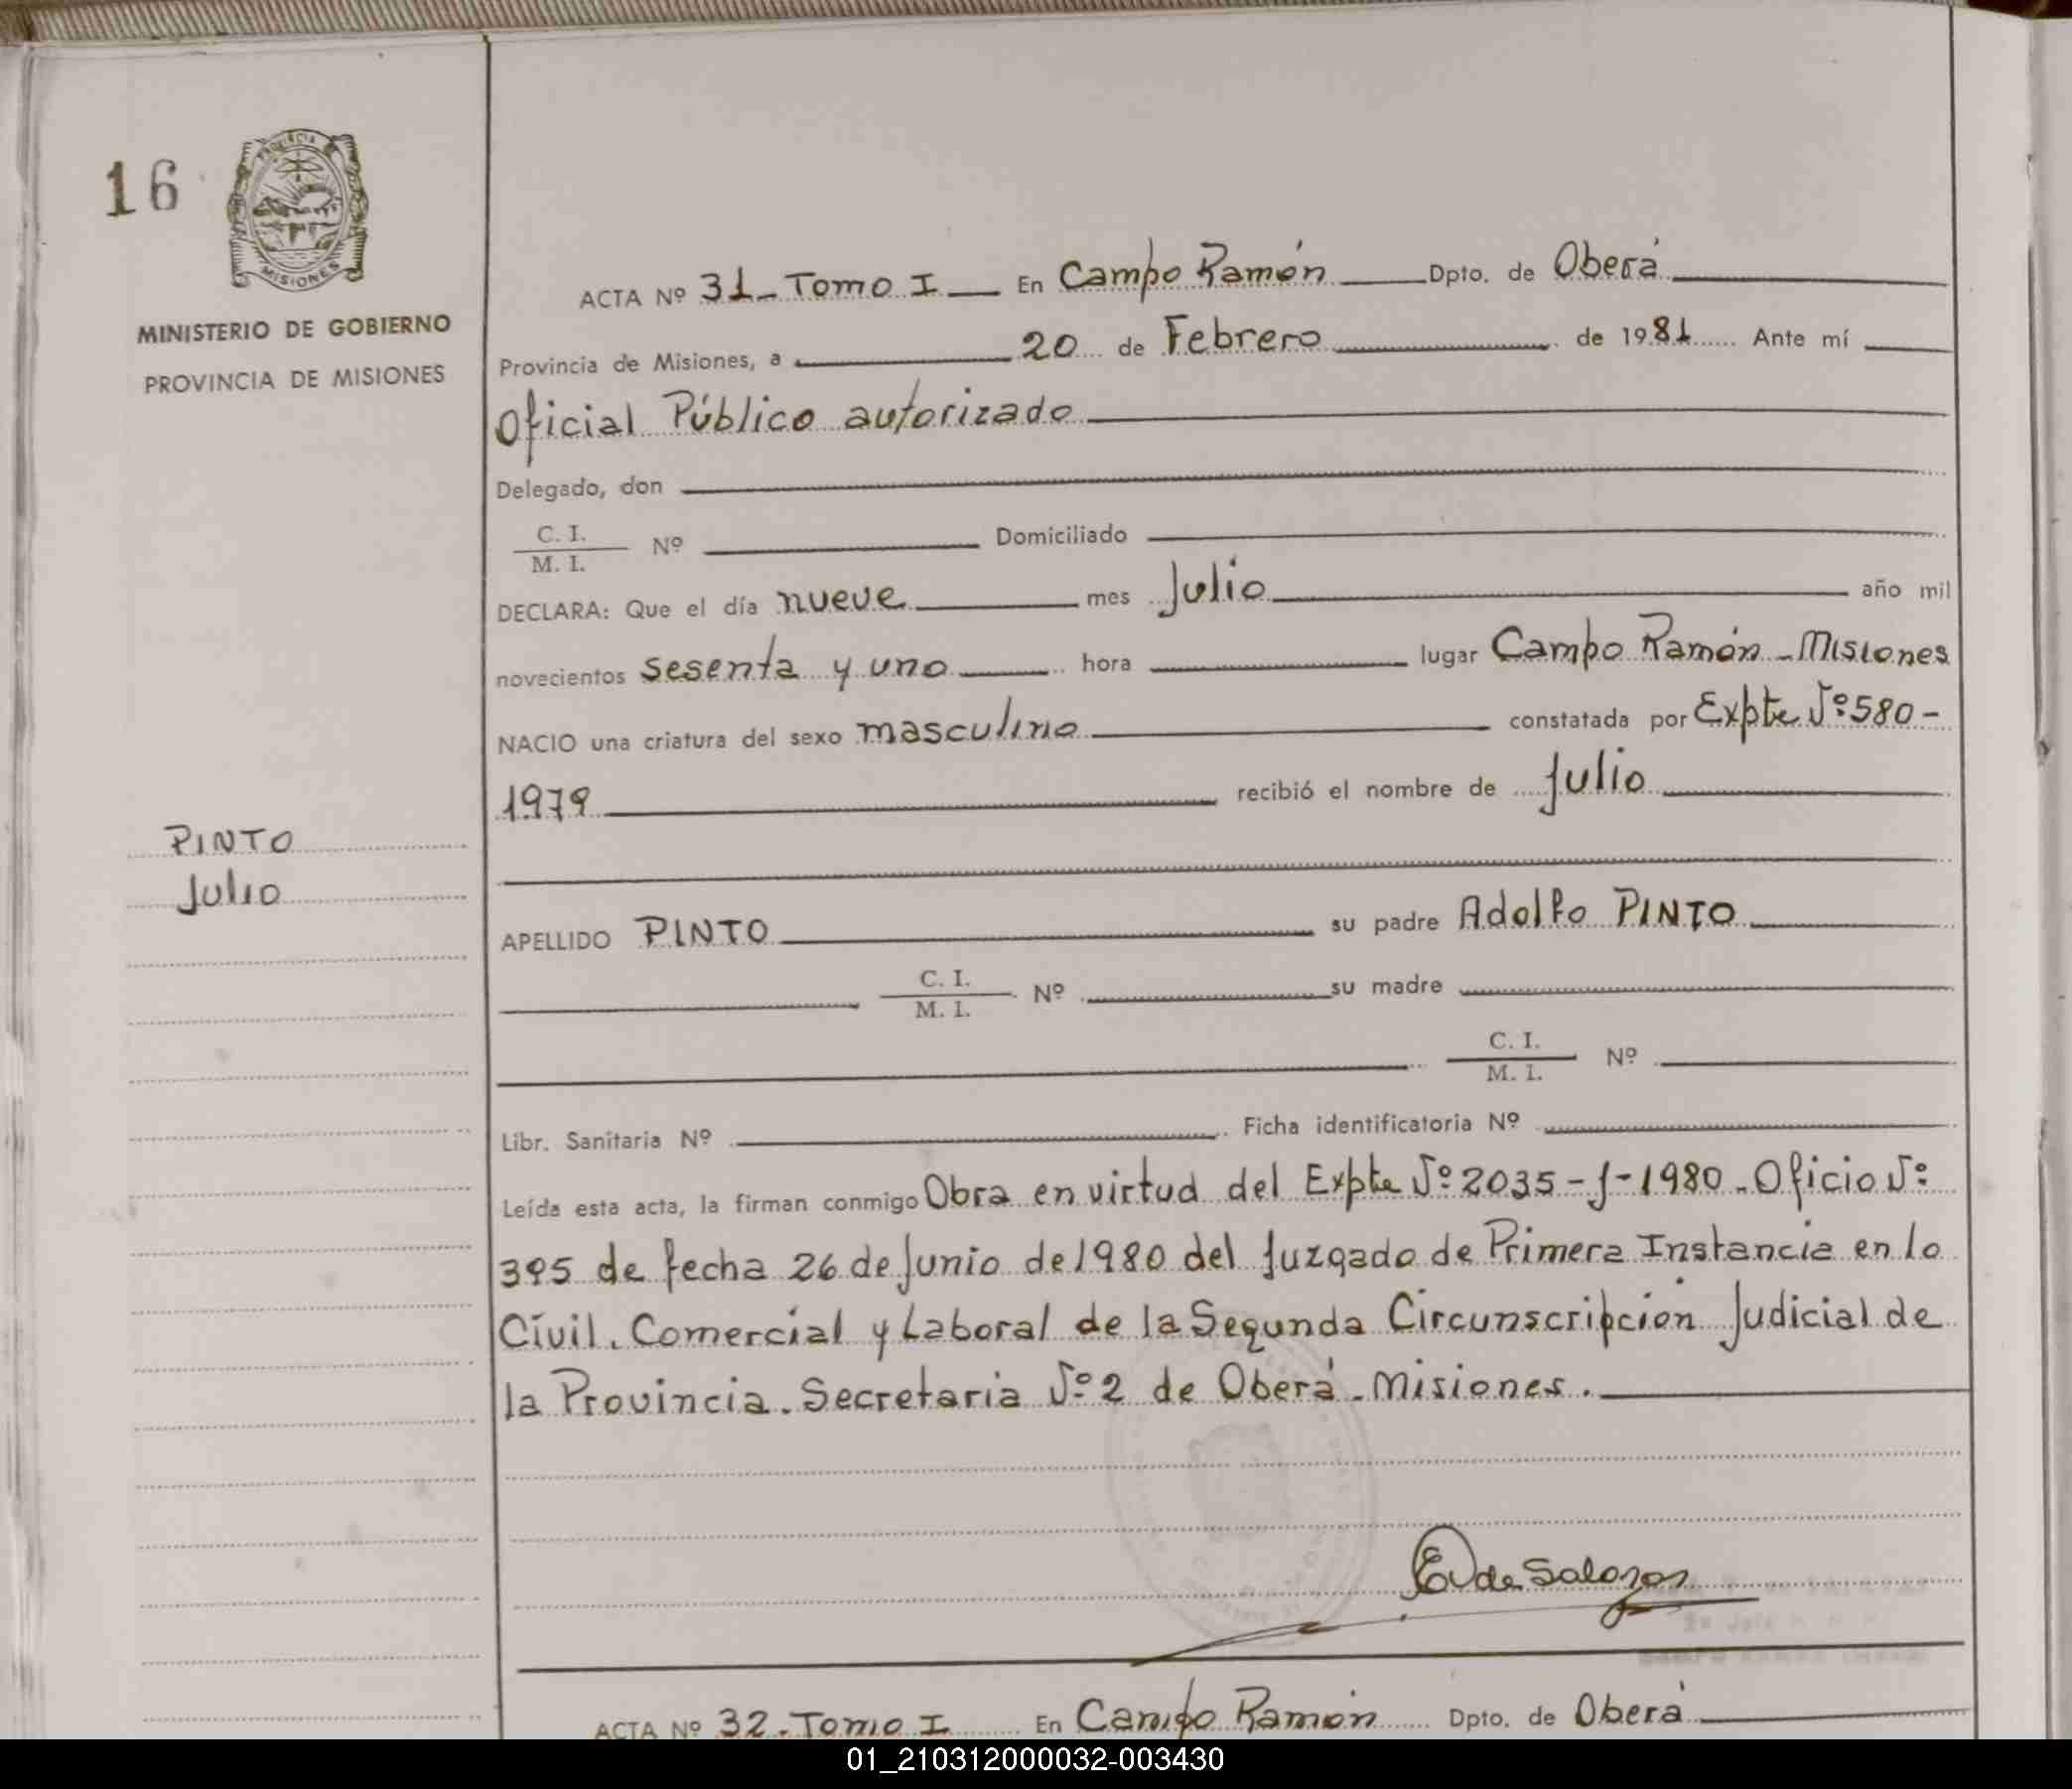 16
PROVINCIA
MISIONES
MINISTERIO DE GOBIERNO
PROVINCIA DE MISIONES
PINTO
Julio
ACTA Nº 31 - Tomo I En Campo Ramón Dpto. de Oberá
Provincia de Misiones, a 20 de Febrero de 1981 Ante mí
Oficial Público autorizado
Delegado, don
C. I.
M. I. Nº Domiciliado
DECLARA: Que el día nueve mes Julio año mil
novecientos sesenta y uno hora lugar Campo Ramón - Misiones
NACIO una criatura del sexo masculino constatada por Expte Nº 580 -
1979 recibió el nombre de Julio
APELLIDO PINTO su padre Adolfo PINTO
C. I.
M. I. Nº su madre
C. I.
M. I. Nº
Libr. Sanitaria Nº Ficha identificatoria Nº
Leída esta acta, la firman conmigo Obra en virtud del Expte Nº 2035 - J - 1980 - Oficio Nº
395 de fecha 26 de Junio de 1980 del Juzgado de Primera Instancia en lo
Civil. Comercial y Laboral de la Segunda Circunscripción Judicial de
la Provincia. Secretaria Nº 2 de Oberá - Misiones.
ACTA Nº 32 - Tomo I En Campo Ramón Dpto. de Oberá
01_210312000032-003430